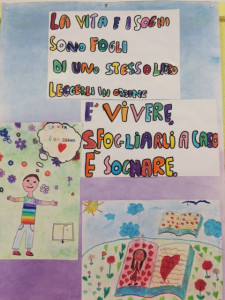 LA VITA E I SOGNI
SONO FOGLI
DI UNO STESSO LIBRO
LEGGERLI IN ORDINE
E' VIVERE,
SFOGLIARLI A CASO
È SOGNARE.